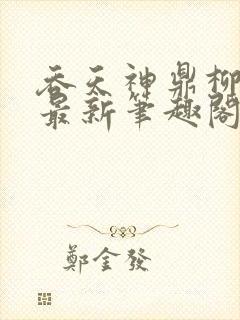 吞天神鼎柳
最新筆趣閣
鄭金發